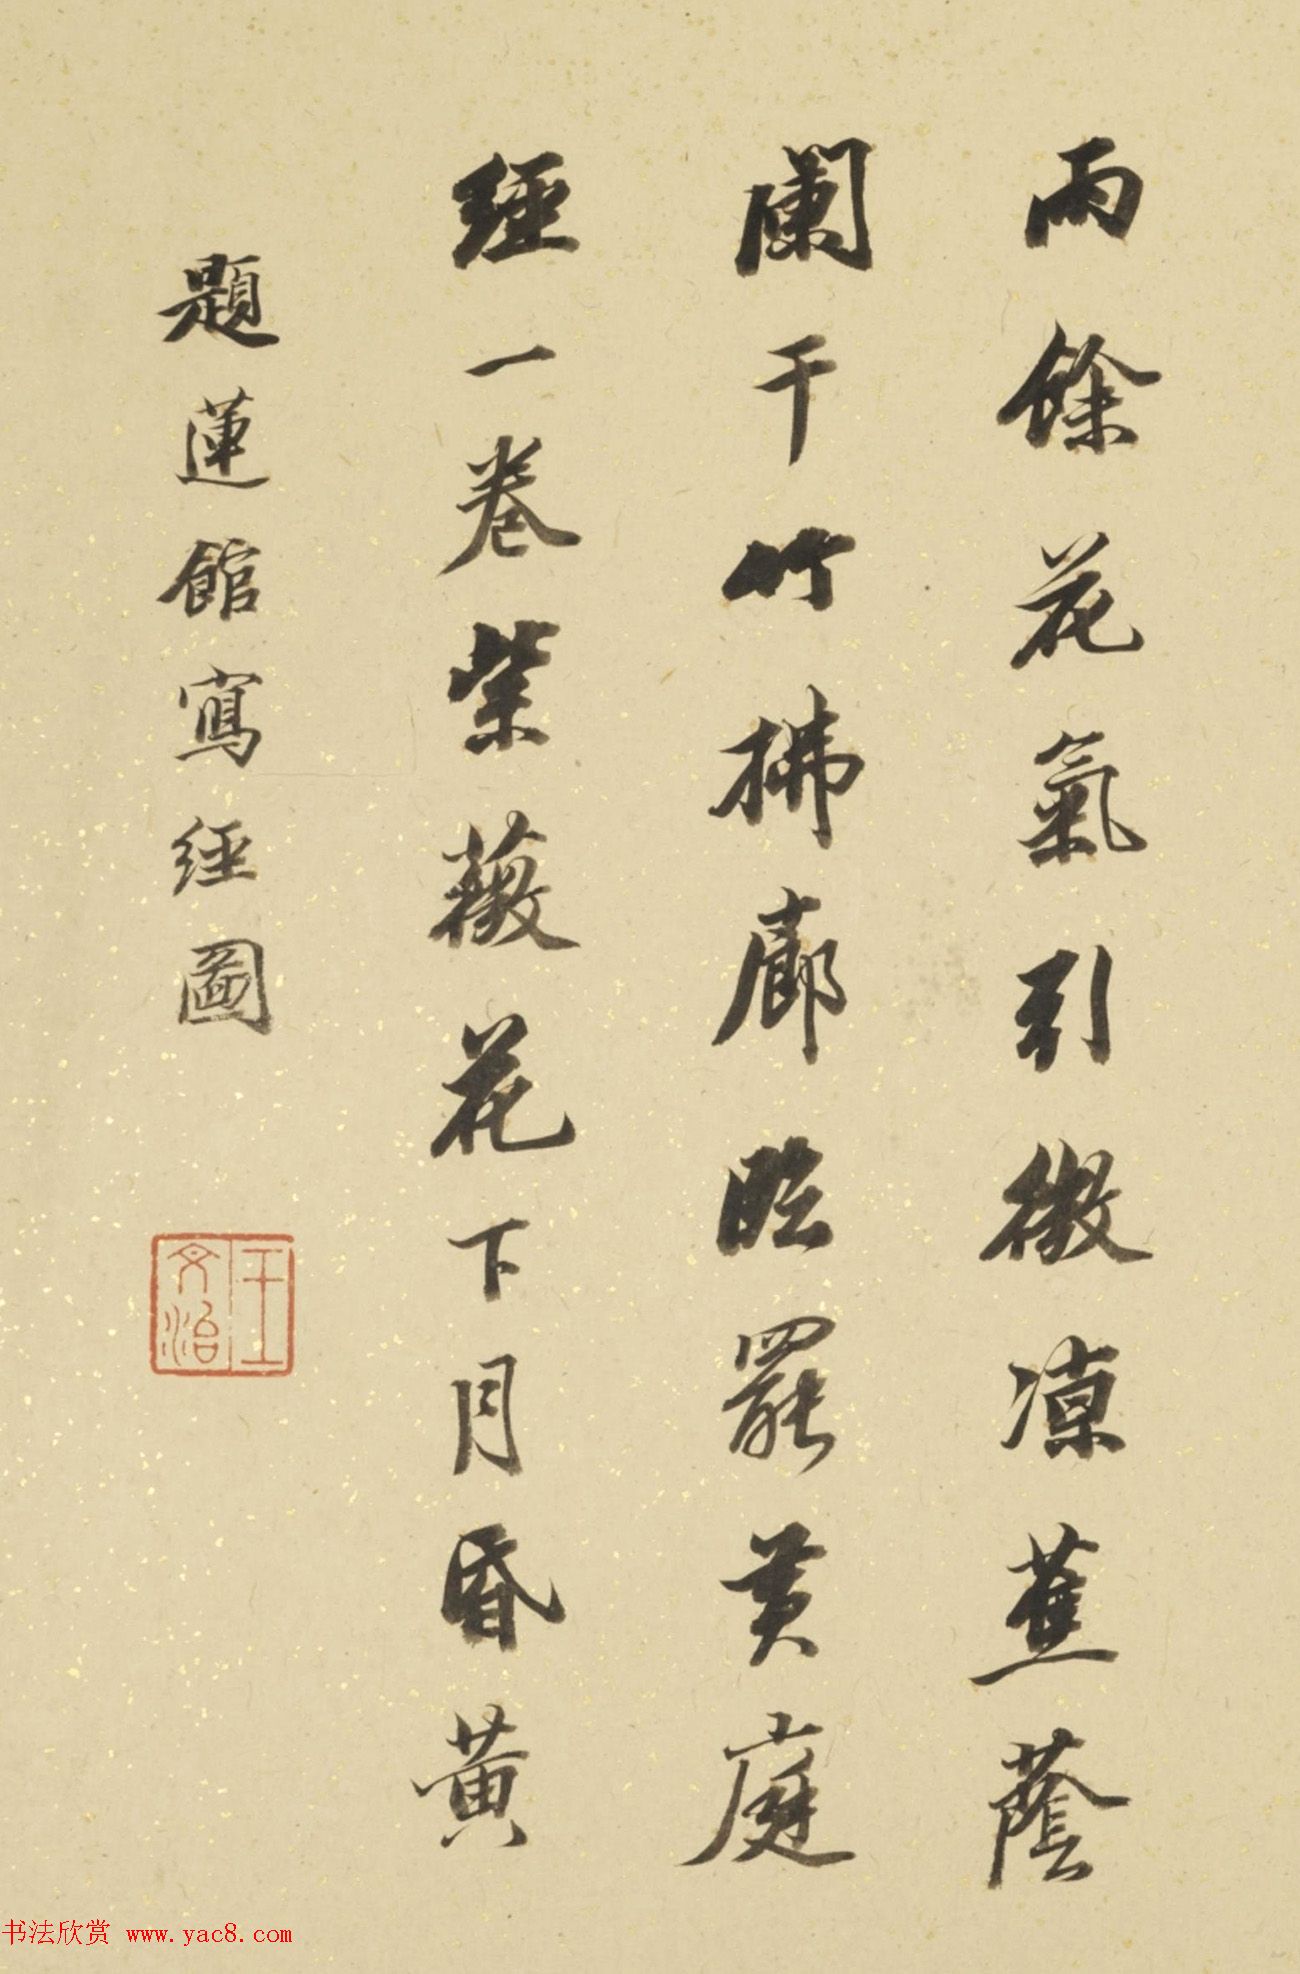 雨餘花氣引微涼蕉蔭
闌干竹拂廊臨罷黃庭
經一卷紫薇花下月昏黃
題蓮館寫經圖
王文治
书法欣赏 www.yac8.com